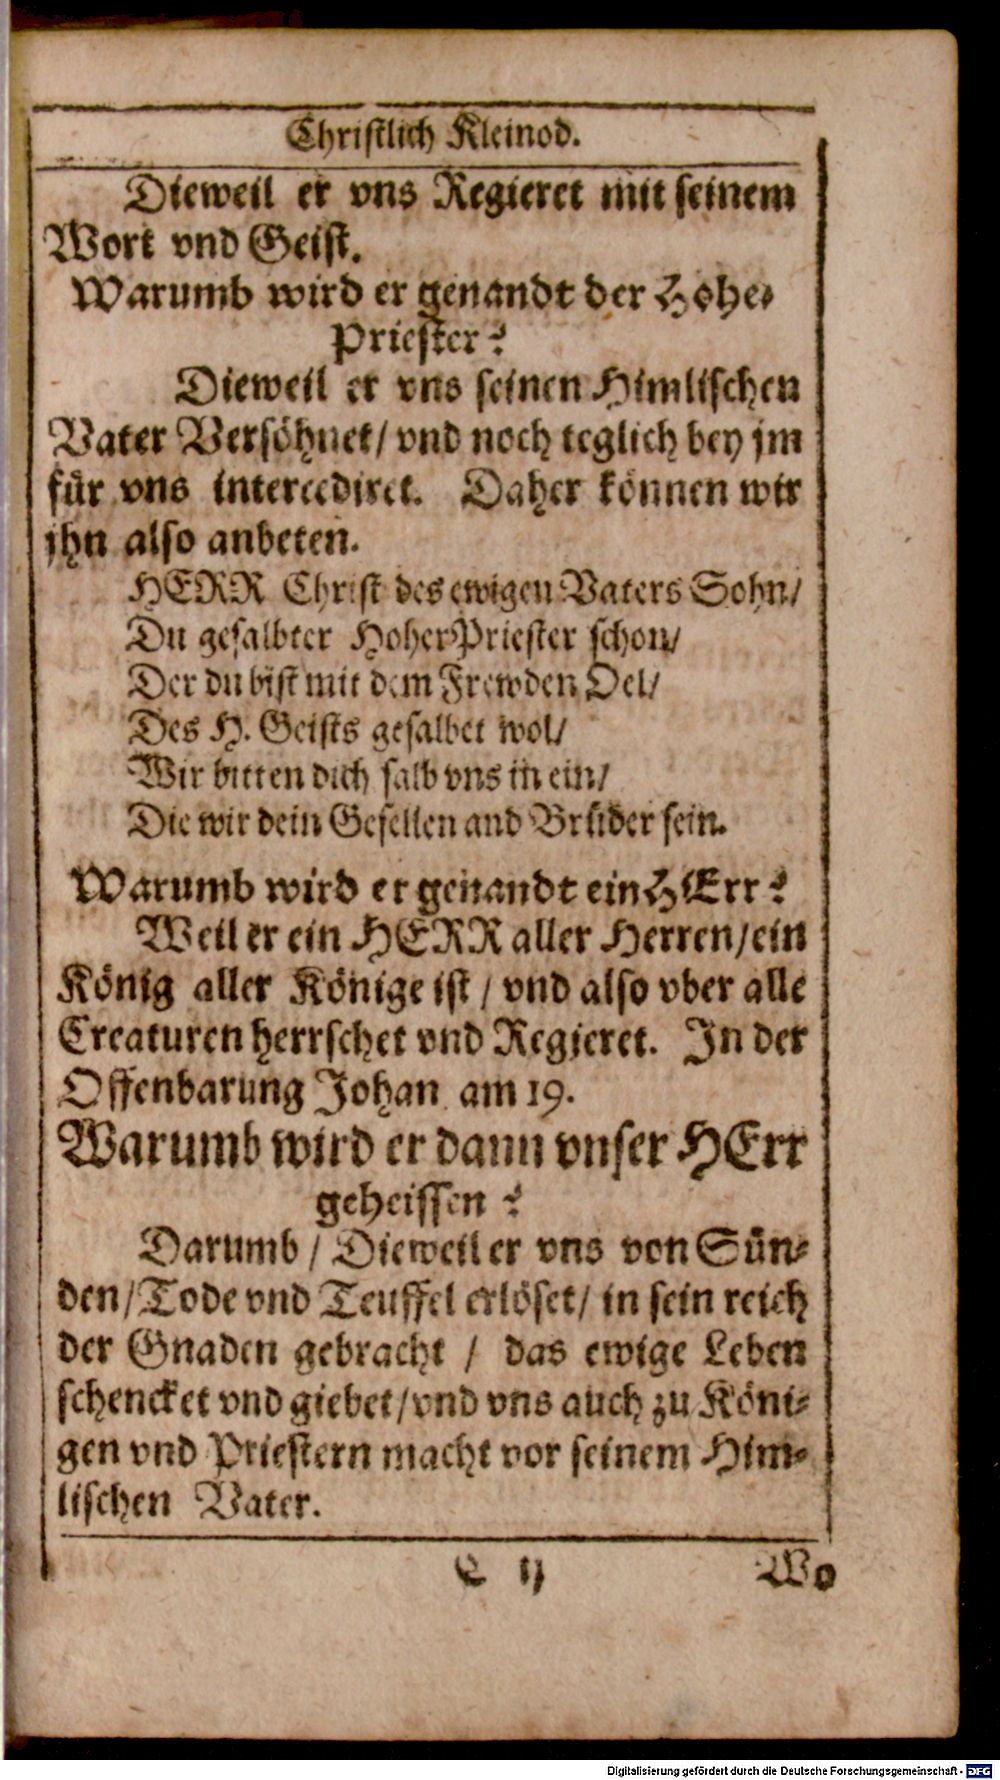 Christlich Kleinod.
Dieweil er vns Regieret mit seinem
Wort vnd Geist.
Warumb wird er genandt der Hohe-
Priester?
Dieweil er vns seinen Himlischen
Vater Versöhnet/ vnd noch teglich bey jm
für vns intercediret. Daher können wir
jhn also anbeten.
HERR Christ des ewigen Vaters Sohn/
Du gesalbter HoherPriester schon/
Der du bist mit dem Frewden Oel/
Des H. Geists gesalbet wol/
Wir bitten dich salb vns in ein/
Die wir dein Gesellen and Brüder sein.
Warumb wird er genandt ein HErr?
Weil er ein HERR aller Herren/ein
König aller Könige ist / vnd also vber alle
Creaturen herrschet vnd Regieret. In der
Offenbarung Johan am 19.
Warumb wird er dann vnser HErr
geheissen ?
Darumb / Dieweil er vns von Sün-
den/Tode vnd Teuffel erlöset/ in sein reich
der Gnaden gebracht / das ewige Leben
schencket vnd giebet/vnd vns auch zu Köni-
gen vnd Priestern macht vor seinem Him-
lischen Vater.
C ij Wo
Digitalisierung gefördert durch die Deutsche Forschungsgemeinschaft - DFG